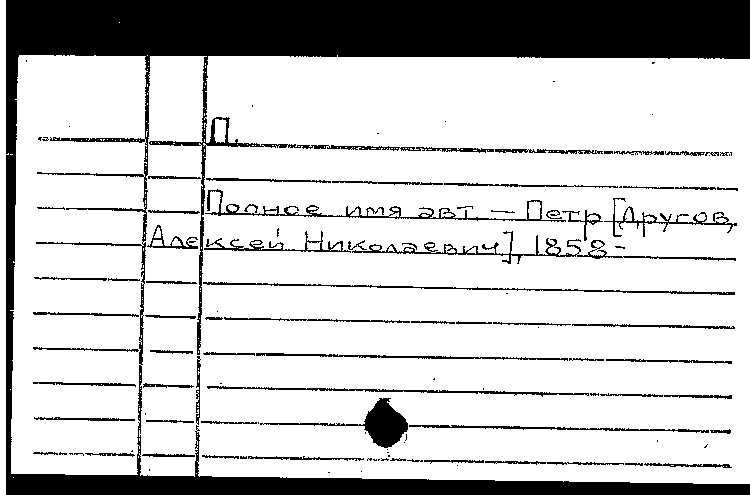 П.
Полное имя авт. — Петр [Другов,
Алексей Николаевич], 1858-